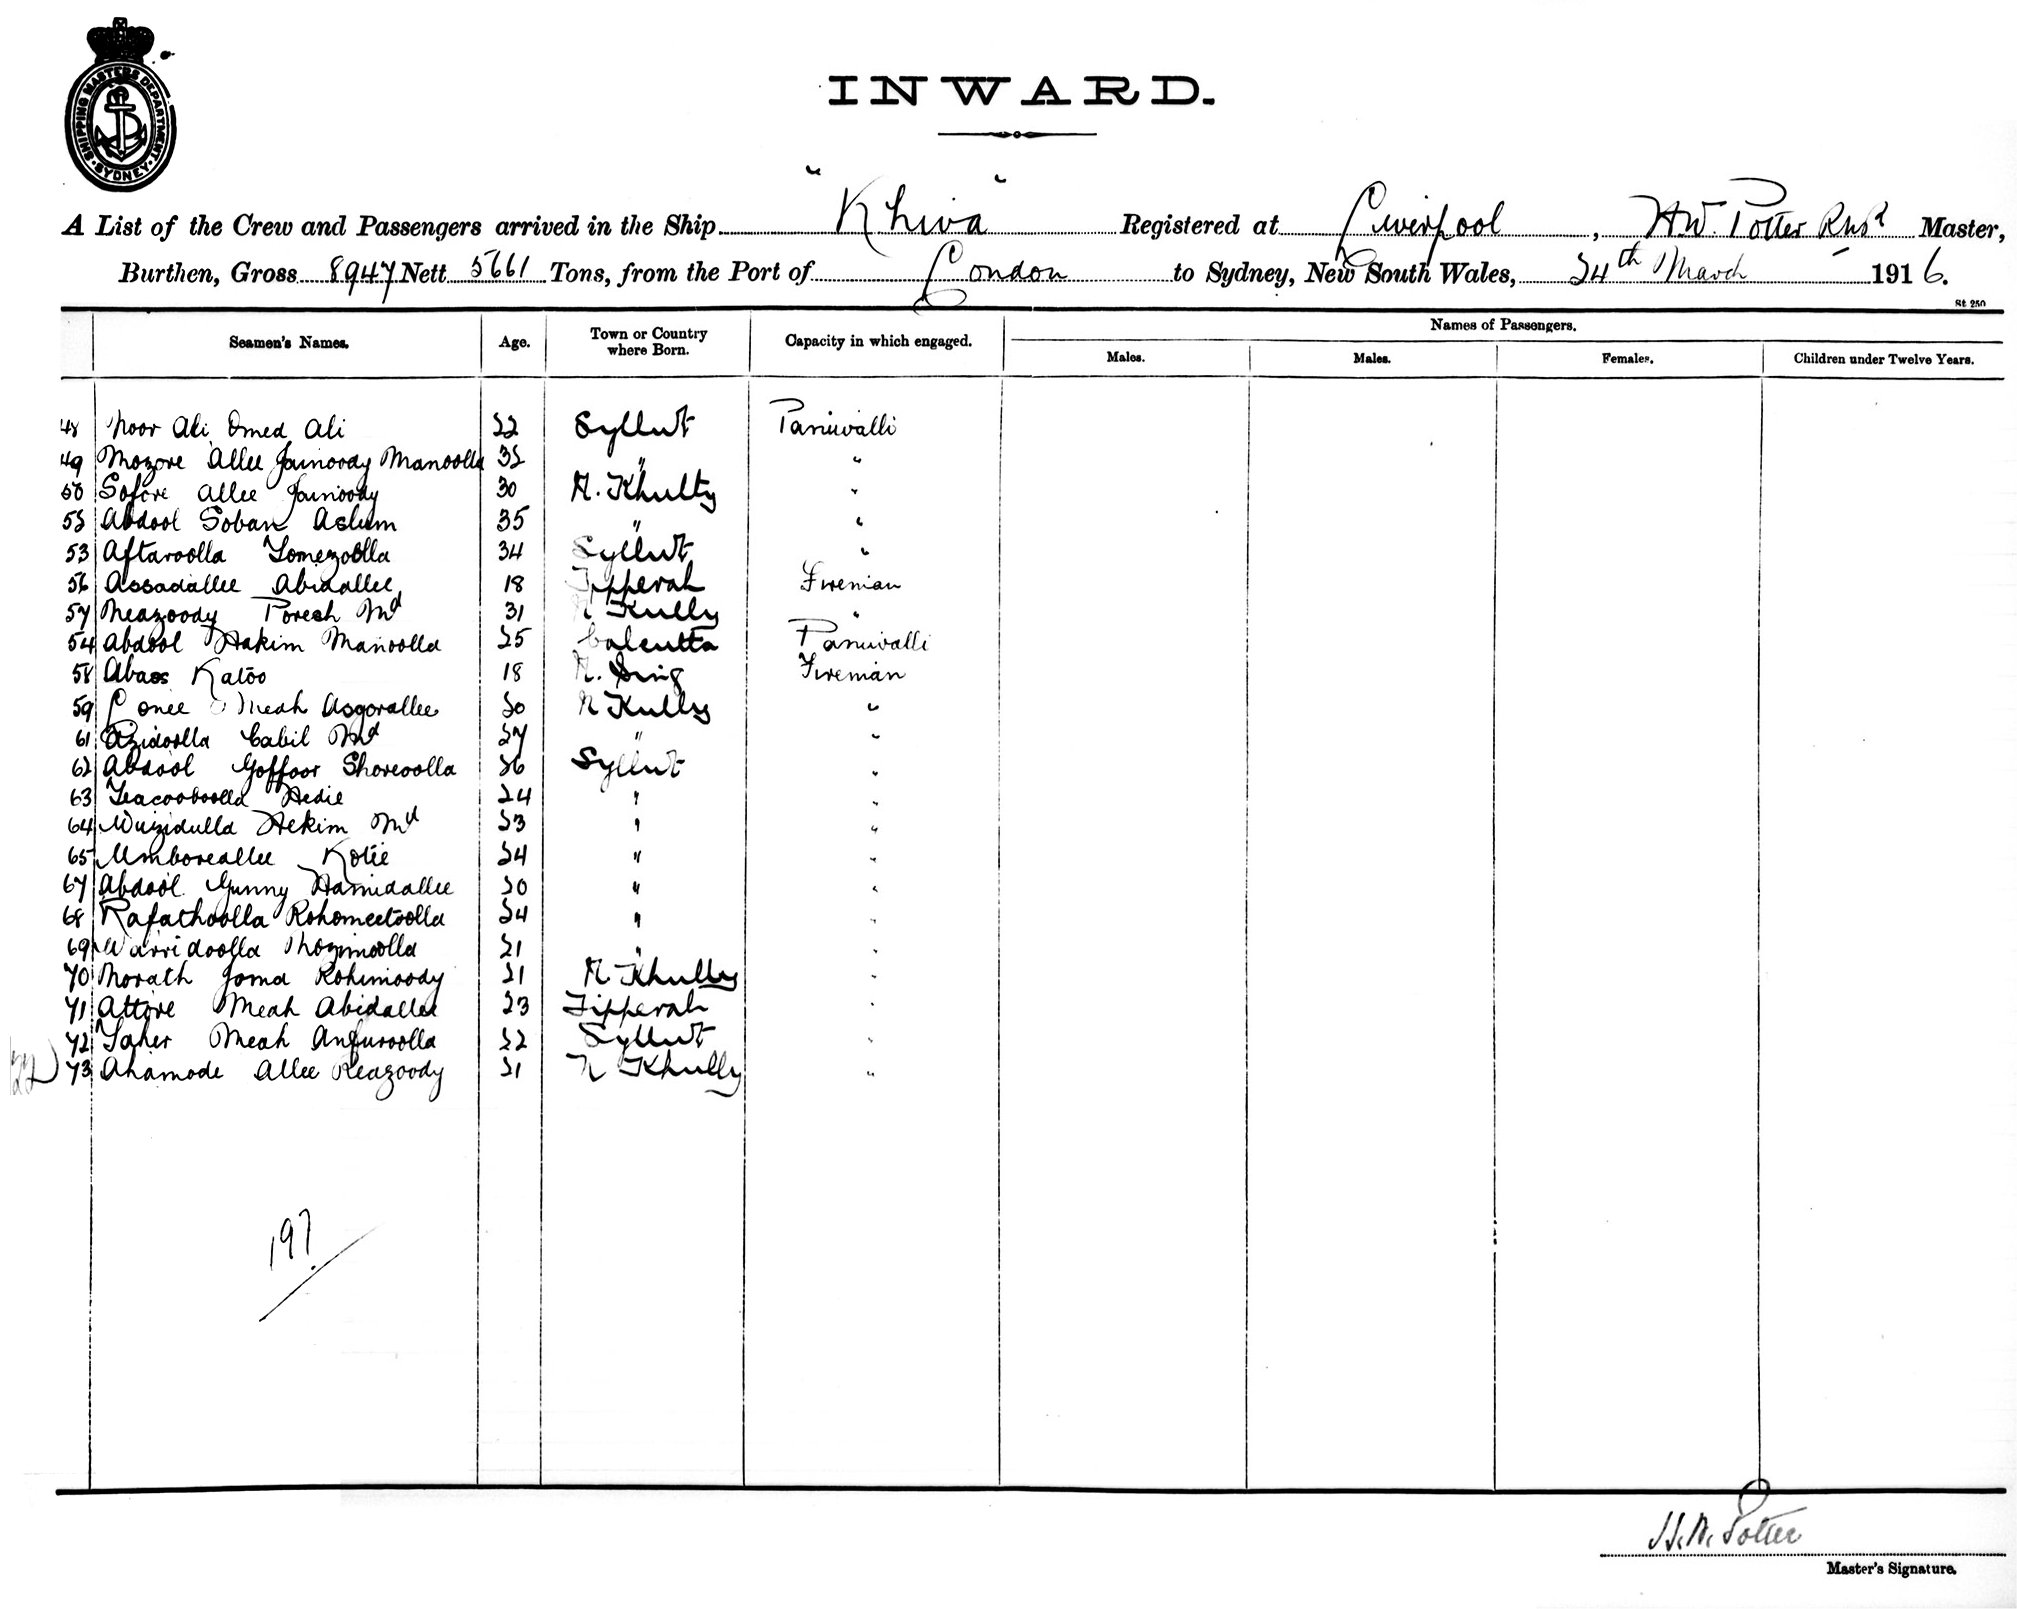 SHIPPING MASTERS DEPARTMENT
SYDNEY
INWARD.
A List of the Crew and Passengers arrived in the Ship "Khiva" Registered at Liverpool, HW. Potter RNR Master,
Burthen, Gross 8947 Nett 5661 Tons, from the Port of London to Sydney, New South Wales, 24th March 1916.
St 250
Seamen's Names. Age. Town or Country where Born. Capacity in which engaged. Names of Passengers.
Males. Males. Females. Children under Twelve Years.
48 Noor Ali Omed Ali 22 Syllut Paniwalli
49 Mozore Allee Jainoody Manoolla 32 " "
50 Sofore Allee Jainoody 30 N. Khulty "
52 Abdool Soban Aslum 35 " "
53 Aftaroolla Tomezoolla 34 Syllut "
56 Assadallee Abidallee 18 Tipperah Fireman
57 Neazoody Poresh Md 31 N Kully "
54 Abdool Hakim Manoolla 25 Calcutta Paniwalli
58 Abaos Katoo 18 Fireman
59 Conee Meah Asgorallee 20 N Kully "
61 Azidoolla Cabil Md 27 " "
62 Abdool Goffoor Shoreoolla 26 Syllut "
63 Yeacooboolla Hedie 24 " "
64 Wuzidulla Hekim Md 23 " "
65 Umboreallee Kotie 24 " "
67 Abdool Gunny Hamidallee 20 " "
68 Rafathoolla Rohomeetoolla 24 " "
69 Warridoolla Mozimoolla 21 " "
70 Morath Joma Rohimoody 21 N. Khully "
71 Attore Meah Abidallee 23 Tipperah "
72 Taher Meah Anfuroolla 22 Syllut "
73 Ahamode Allee Reazoody 21 N Khully "
197
H.W. Potter
Master's Signature.